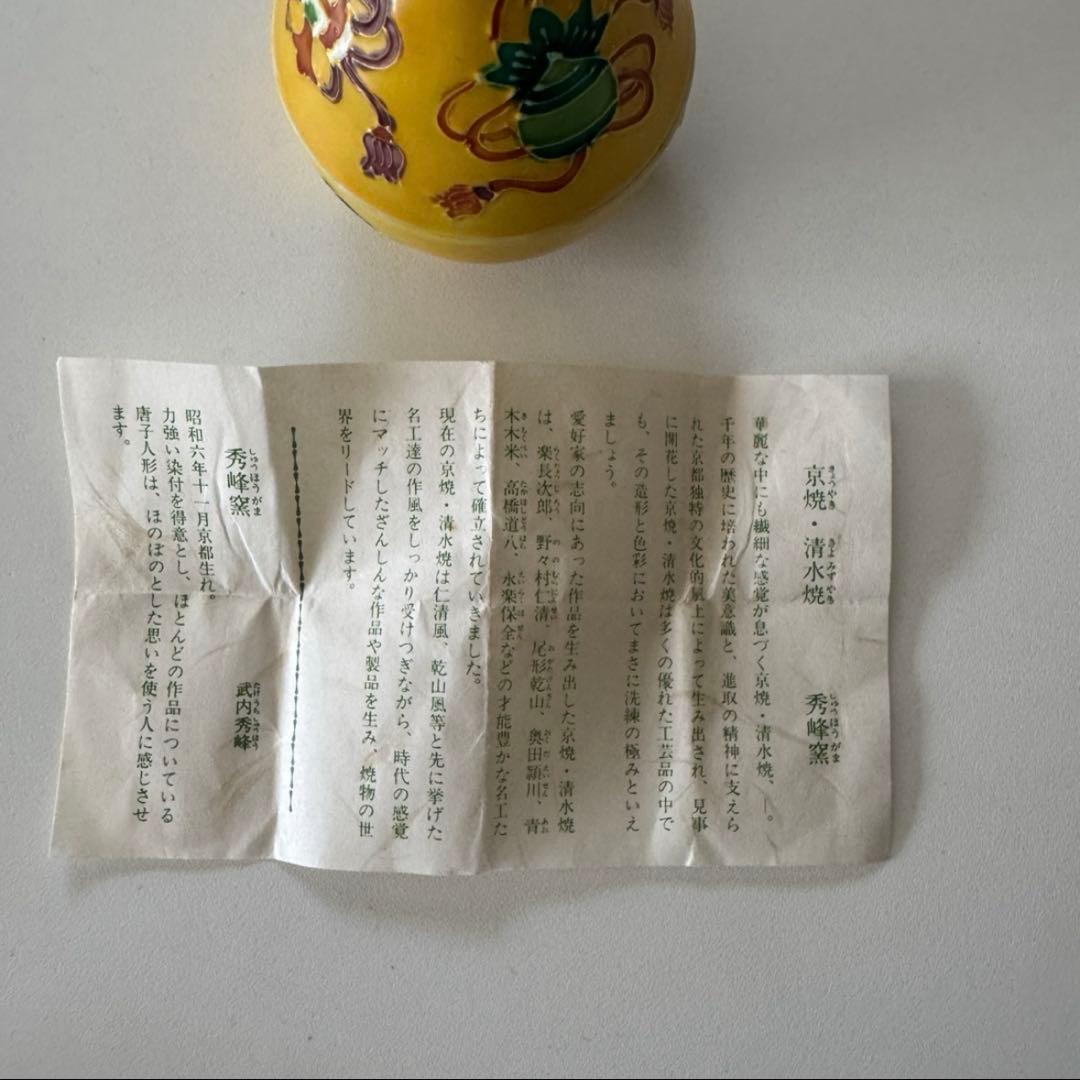 京焼・清水焼 秀峰窯
華麗な中にも繊細な感覚が息づく京焼・清水焼、―。
千年の歴史に培われた美意識と、進取の精神に支えら
れた京都独特の文化的風土によって生み出され、見事
に開花した京焼・清水焼は多くの優れた工芸品の中で
も、その造形と色彩においてまさに洗練の極みといえ
ましょう。
愛好家の志向にあった作品を生み出した京焼・清水焼
は、楽長次郎、野々村仁清、尾形乾山、奥田穎川、青
木木米、高橋道八、永楽保全などの才能豊かな名工た
ちによって確立されていきました。
現在の京焼・清水焼は仁清風、乾山風等と先に挙げた
名工達の作風をしっかり受けつぎながら、時代の感覚
にマッチしたざんしんな作品や製品を生み、焼物の世
界をリードしています。
秀峰窯 武内秀峰
昭和六年十一月京都生れ。
力強い染付を得意とし、ほとんどの作品についている
唐子人形は、ほのぼのとした思いを使う人に感じさせ
ます。